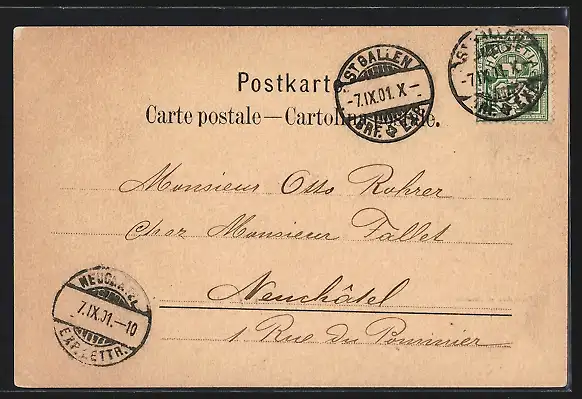 Postkarte
Carte postale — Cartolina postale.
ST GALLEN
-7.IX.01.X-
BRF.
ST GALLEN
-7.IX.01.X-
BRF.
HELVETIA
Monsieur Otto Rohrer
Chez Monsieur Fallet
Neuchâtel
1 Rue du Pommier
NEUCHATEL
7.IX.01.-10
EXP. LETTR.